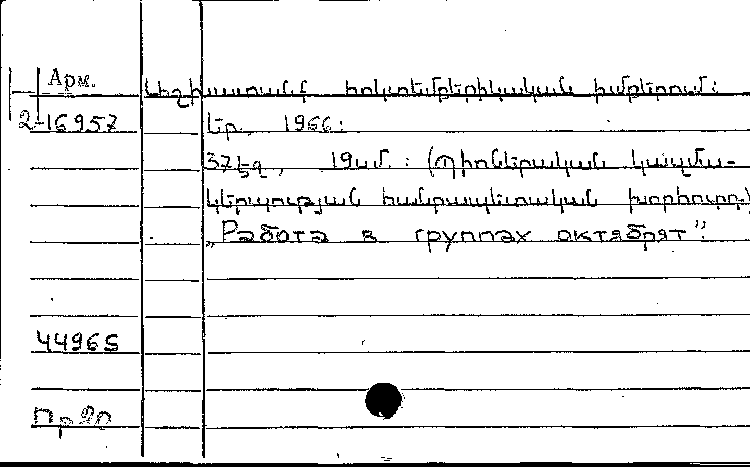 Арм.
2-16957
Աշխատանք հոկտեմբերիկական խմբերում:
Եր., 1966:
37 էջ, 19սմ.: (Պիոներական կազմա-
կերպության հանրապետական խորհուրդ)
„Работа в группах октябрят":
44965
Пр 20